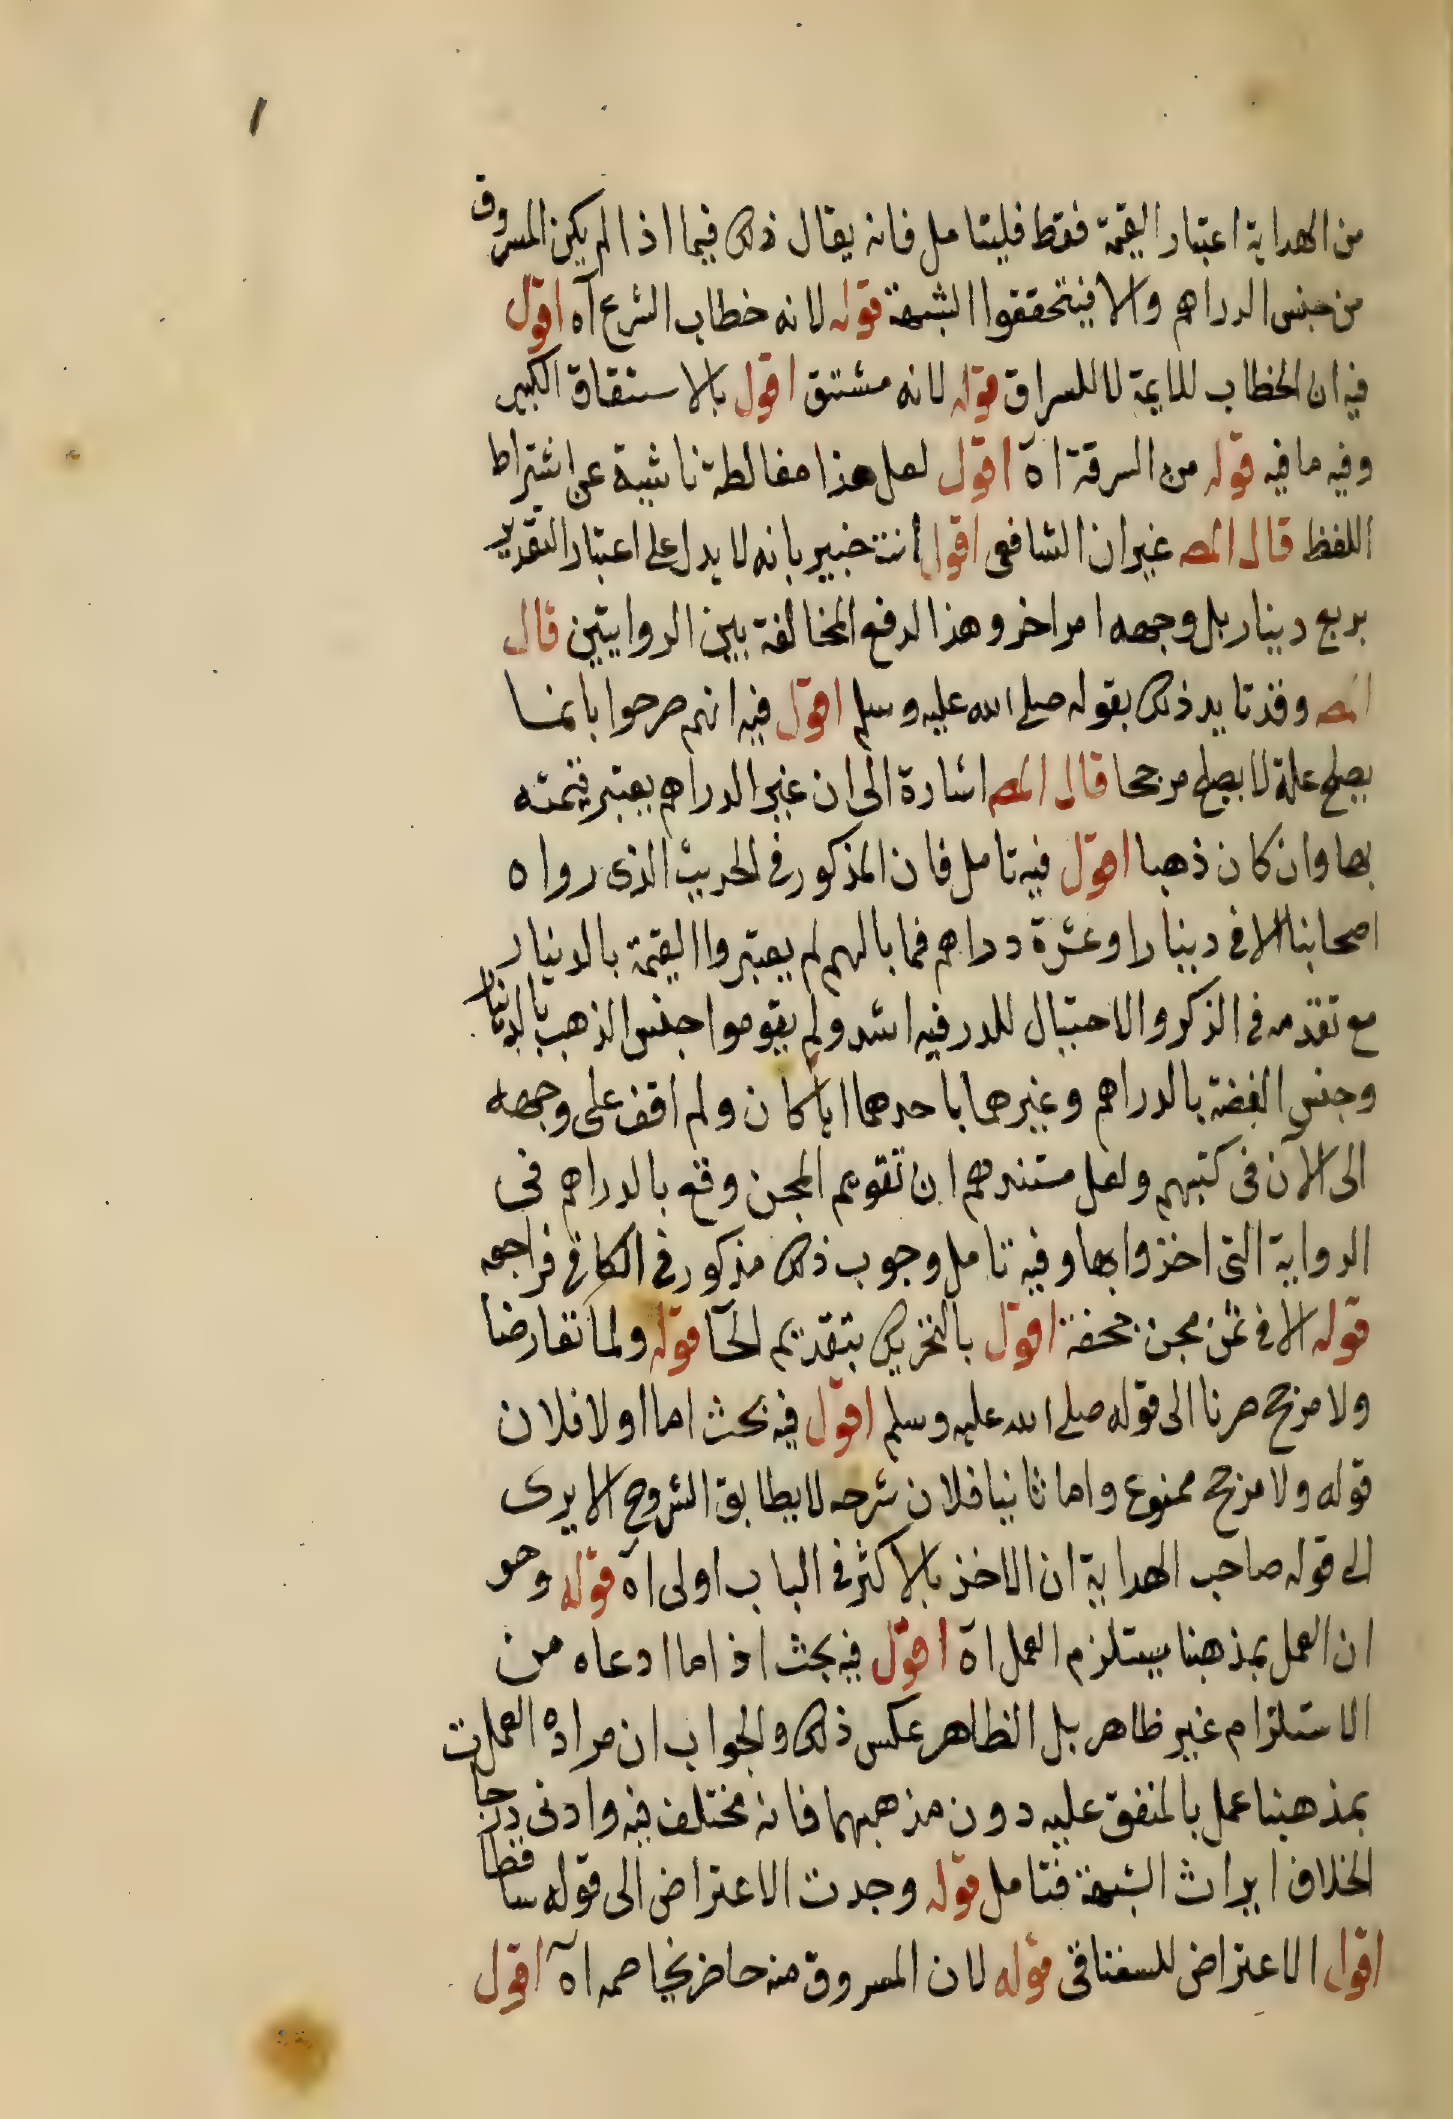 من الهداية اعتبار القيمة فقط فليتامل فانه يقال ذلك فيما اذا لم يكن المسروق
من جنس الدراهم والا فيتحققوا الشبهة قوله لانه خطاب الشرع آه اقول
فيه ان الخطاب للايمة لا للسراق قوله لانه مشتق اقول بالاستقاق الكبير
وفيه ما فيه قوله من السرقة اه اقول لعل هذا مغالطة ناشية عن اشتراط
اللفظ قال المصـ غير ان الشافعى اقول انت خبير بانه لا يدل على اعتبار التقدير
بربع دينار بل وجهه امر اخر وهذا لدفع المخالفة بين الروايتين قال
المصـ وقد تايد ذلك بقوله صلى الله عليه وسلم اقول فيه انهم صرحوا بانما
يصلح علة لا يصلح مرجحا قال المصـ اشارة الى ان غير الدراهم يعتبر قيمته
بها وان كان ذهبا اقول فيه تامل فان المذكور فى الحديث الذى رواه
اصحابنا الا فى دينار او عشرة دراهم فما بالهم لم يعتبروا القيمة بالدنيار
مع تقدمه فى الذكر والاحتيال للدر فيه اشد ولم يقوموا جنس الذهب بالدنيار
وجنس الفضة بالدراهم وغيرهما باحدهما ايا كان ولم اقف على وجهه
الى الآن فى كتبهم ولعل مستندهم ان تقويم المجن وقع بالدراهم فى
الرواية التى اخذوا بها وفيه تامل وجوب ذلك مذكور فى الكافى فراجعه
قوله الا فى ثمن مجن جحفة اقول بالتحريك بتقديم الحآ قوله ولما تعارضا
ولا مرجح صرنا الى قوله صلى الله عليه وسلم اقول فيه بحث اما اولا فلان
قوله ولا مرجح ممنوع واما ثانيا فلان شرحه لا يطابق الشروح الا يرى
الى قوله صاحب الهداية ان الاخذ بالاكثر فى الباب اولى آه قوله وهو
ان العمل بمذهبنا يستلزم العمل اه اقول فيه بحث اذ اما ادعاه من
الاستلزام غير ظاهر بل الظاهر عكس ذلك والجواب ان مراده العملـ
بمذهبنا عمل بالمتفق عليه دون مذهبهما فانه مختلف فيه وادنى درجات
الخلاف ايراث الشبهة فتامل قوله وجدت الاعتراض الى قوله ساقطا
اقول الاعتراض للسغناقى قوله لان المسروق منه حاضر يخاصمه اه اقول